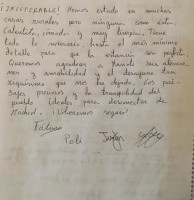 ¡INSUPERABLE! Hemos estado en muchas
casas rurales pero ninguna como ésta.
Calentita, cómoda y muy limpia. Tiene
todo lo necesario, hasta el más mínimo
detalle para que la estancia sea perfecta.
Queremos agradecer a Manoli sus atencio-
nes y amabilidad y el desayuno tan
exquisito que nos ha dejado. Los pai-
sajes preciosos y la tranquilidad del
pueblo ideales para desconectar de
Madrid. ¡Volveremos seguro!
Fátima
Poli